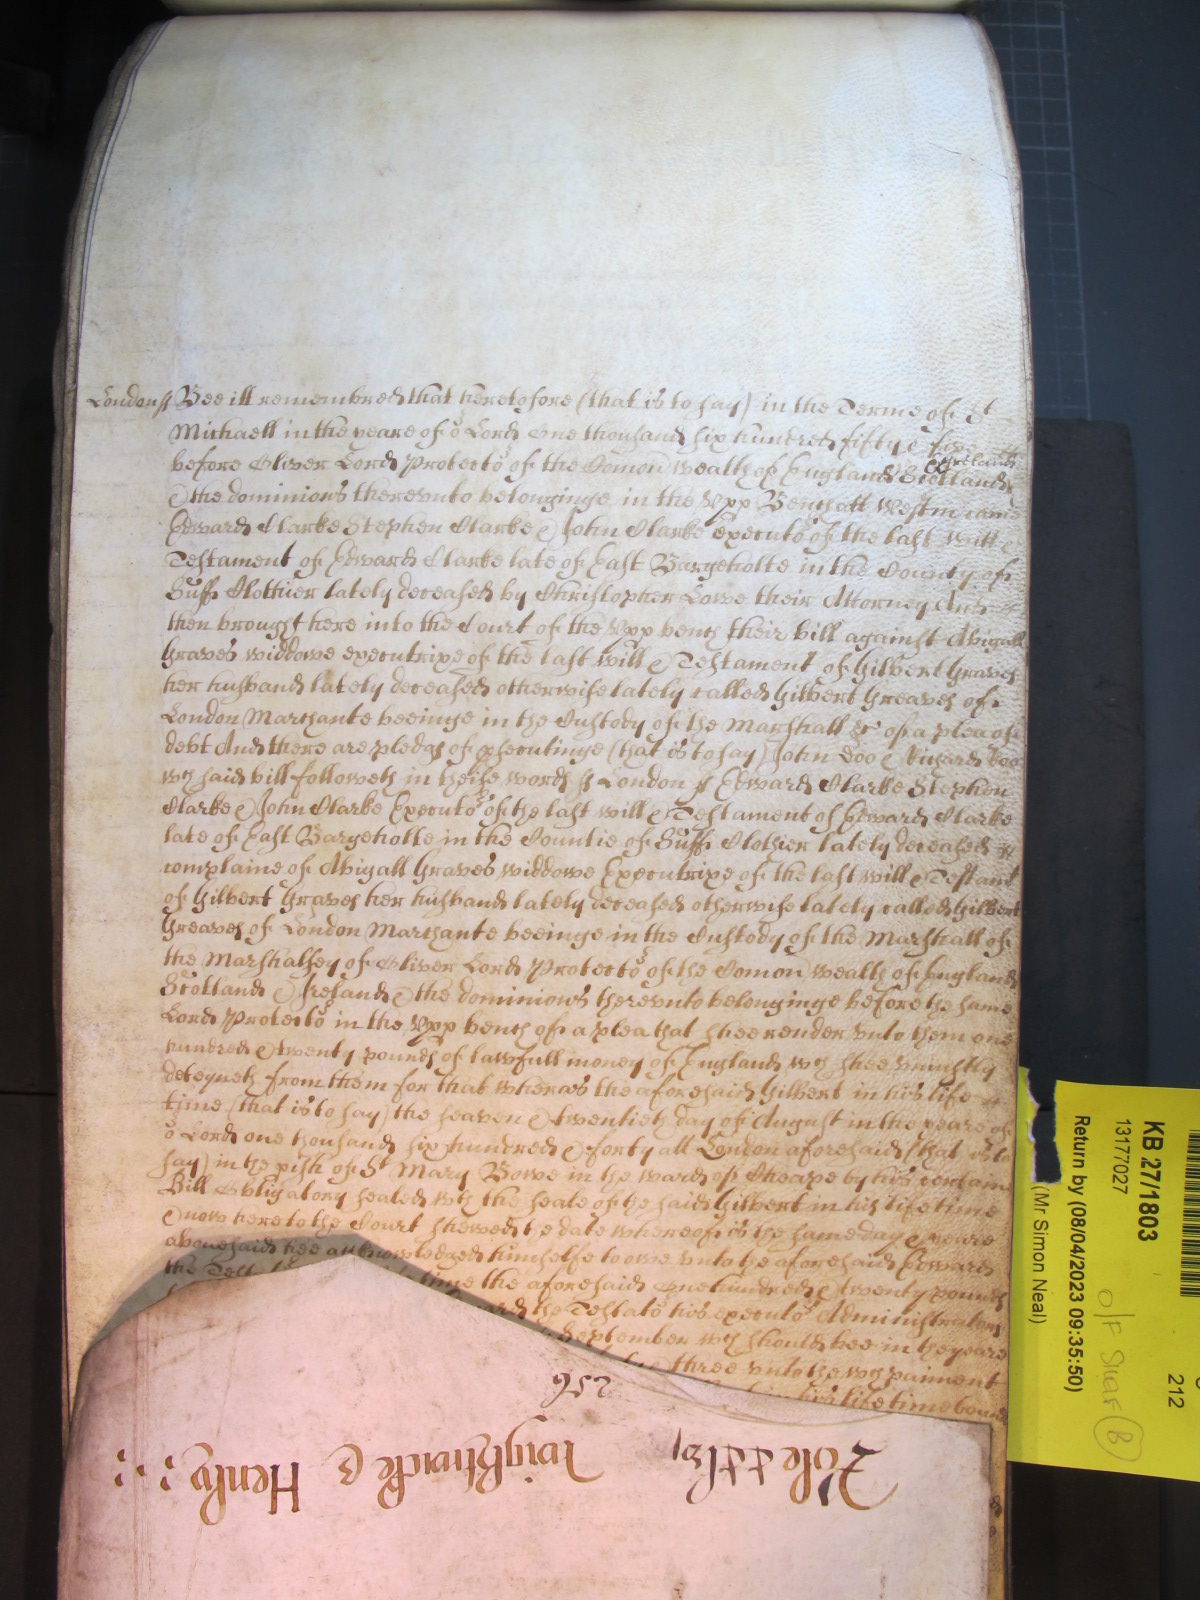 London // Bee itt remembred that heretofore (that is to say) in the Terme of St
Michaell in the yeare of or Lord one thousand six hundred fifty & fower
before Oliver Lord Protector of the Comon wealth of England Scotland & Ireland
& the dominions therevnto belonginge in the Vpp Bench att Westm came
Edward Clarke Stephen Clarke & John Clarke executors of the last will &
Testament of Edward Clarke late of East Bargeholte in the County of
Suff Clothier lately deceased by Christopher Lowe their Attorney And
then brought here into the Court of the Vpp bench their bill against Abigall
Graves widdowe executrixe of the last will & Testament of Gilbert Graves
her husband lately deceased otherwise lately called Gilbert Greaves of
London Marchante beeinge in the Custody of the Marshall &c of a plea of
debt And there are pledgs of psecutinge (that is to say) John Doo & Richard Roo
wch said bill followeth in theise words ss London ss Edward Clarke Stephen
Clarke & John Clarke Executors of the last will & Testament of Edward Clarke
late of East Bargeholte in the Countie of Suff Clothier lately deceased
complaine of Abigall Graves widdowe Executrixe of the last will & Testamt
of Gilbert Graves her husband lately deceased otherwise lately called Gilbert
Greaves of London Marchante beeinge in the Custody of the Marshall of
the Marshalsey of Oliver Lord Protector of the Comon wealth of England
Scotland & Ireland & the dominions therevnto belonginge before the same
Lord Protector in the Vpp bench of a plea that shee render vnto them one
hundred & twenty pounds of lawfull money of England wch shee vniustly
deteyneth from them for that wheras the aforesaid Gilbert in his life
time (that is to say) the seaven & twentieth day of August in the yeare of
or Lord one thousand six hundred & forty att London aforesaid (that is to
say) in the pish of St Mary Bowe in the ward of Cheape by his certaine
Bill Obligatory sealed wth the seale of the said Gilbert in his life time
& now here to the Court shewed the date whereof is the same day & yeare
abovesaid hee acknowledged himselfe to owe vnto the aforesaid Edward
the Test time the aforesaid one hundred & twenty pounds
the Testator his executors Administrators
September wch should bee in the yeare
three vnto the wch paiment
his life time bound
256
Pole
Twightwicke & Henly
KB 27/1803
13177027
Return by (08/04/2023 09:35:50)
(Mr Simon Neal)
212
O/F Shelf B